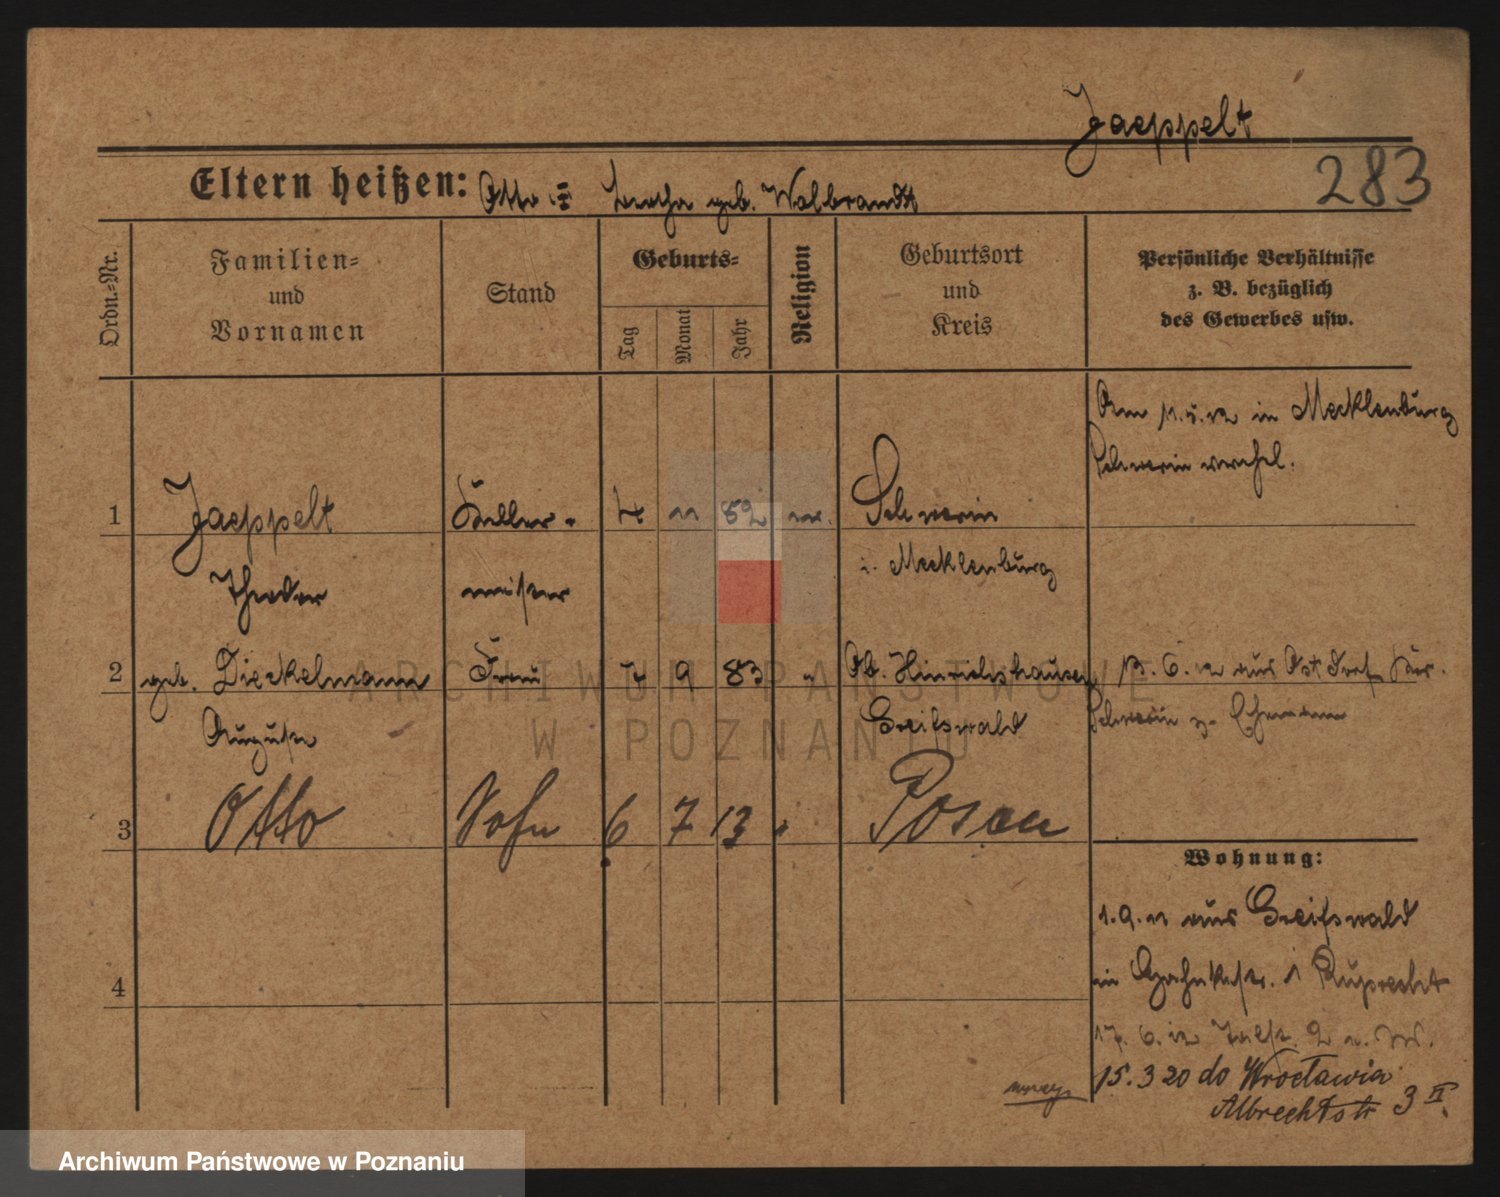 Jaeppelt
283
Eltern heißen: Otto geb. Wolbrandt
Ordn.-Nr.
Familien-
und
Vornamen
Stand
Geburts-
Tag
Monat
Jahr
Religion
Geburtsort
und
Kreis
Persönliche Verhältnisse
z. B. bezüglich
des Gewerbes usw.
Am 11.5.12 in Mecklenburg
Schwerin verehel.
1 Jaeppelt Keller- 4 11 82 ev. Schwerin
i. Mecklenburg
Theodor meister
2 geb. Dieckelmann Frau 7 9 83 " Ob. Hinrichshausen
13.6.12 aus Ostdorf
Auguste Greifswald
Schwerin z. Ehemann
3 Otto Sohn 6 7 13 " Posen
Wohnung:
1.9.11 aus Greifswald
4
in 1 Ruprecht
17.6.12 2
15.3 20 do Wrocławia
Albrechtstr 3 II.
ARCHIWUM PAŃSTWOWE
W POZNANIU
Archiwum Państwowe w Poznaniu